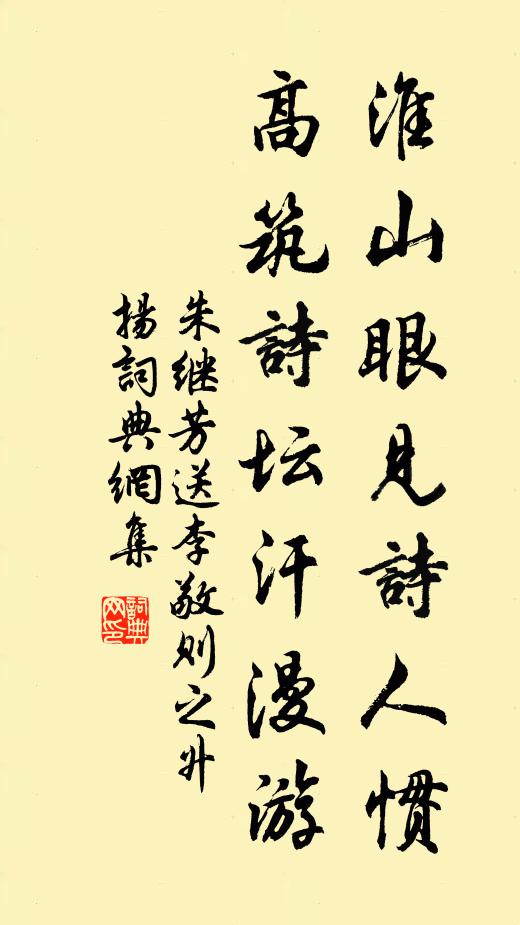 淮山眼見詩人慣
高筑詩坛汗漫游
朱继芳送李敬则之升
揚詞典網集
詞典网印